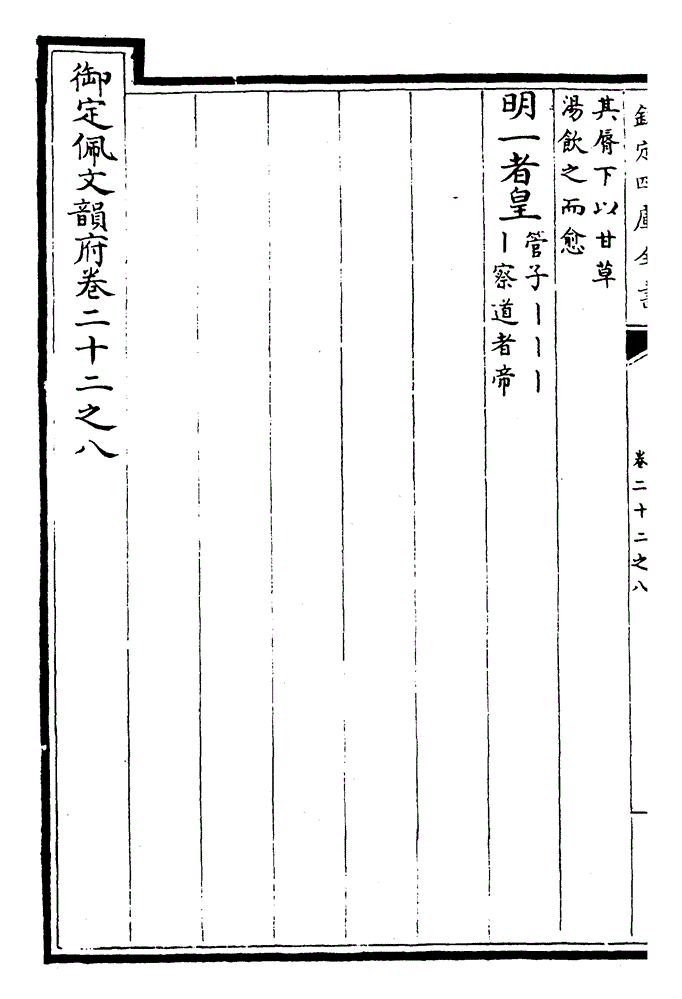 欽定四庫全書
卷二十二之八
其脣下以甘草
湯飲之而愈
明一者皇管子丨丨丨
丨察道者帝
御定佩文韻府卷二十二之八